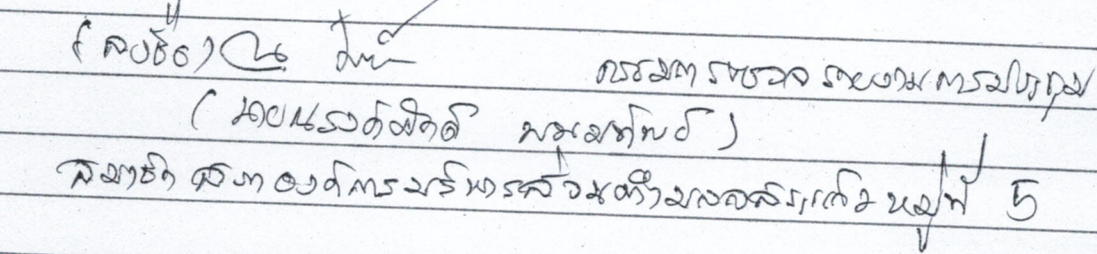 (ลงชื่อ) กรรมการตรวจรายงานการประชุม
(นายณรงค์ศักดิ์)
สมาชิกสภาองค์การบริหารส่วนตำบลสระแก้ว หมู่ที่ 5